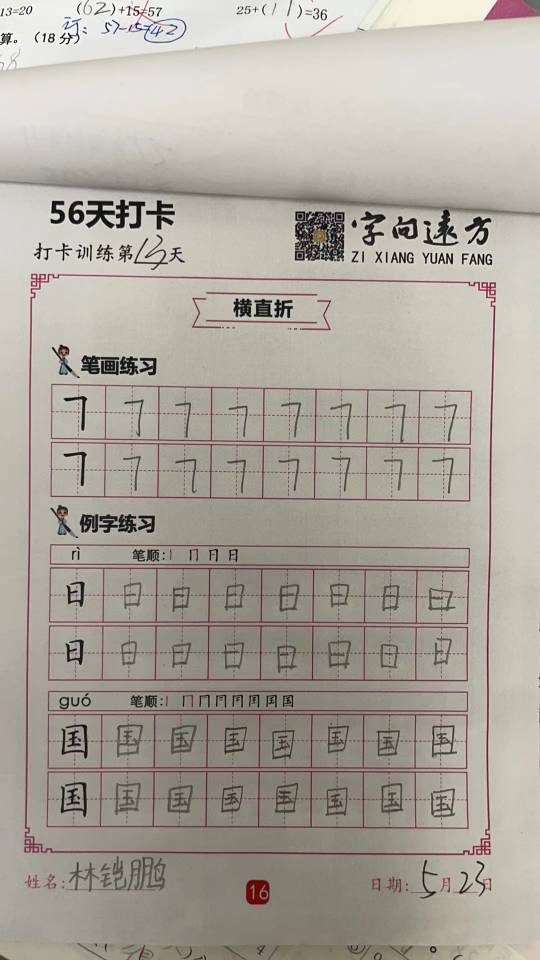 13=20 (62)+15=57 25+(11)=36
算。(18分) 订: 57-15=42
56天打卡
打卡训练第13天
字向遠方
ZI XIANG YUAN FANG
横直折
笔画练习
㇕ ㇕ ㇕ ㇕ ㇕ ㇕ ㇕ ㇕
㇕ ㇕ ㇕ ㇕ ㇕ ㇕ ㇕ ㇕
例字练习
rì 笔顺:丨 冂 日 日
日 日 日 日 日 日 日 日
日 日 日 日 日 日 日 日
guó 笔顺:丨 冂 冂 冃 囯 囯 国 国
国 国 国 国 国 国 国 国
国 国 国 国 国 国 国 国
姓名:林铠鹏
16
日期: 5月23日